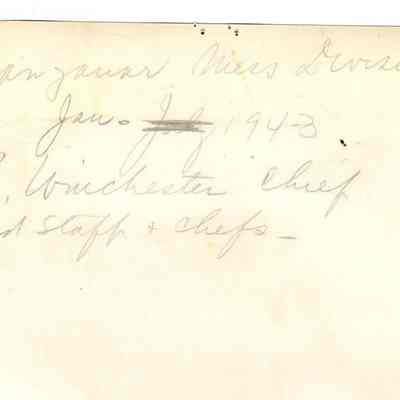 anzanar Mess Divisi
Jan. July 1943
Winchester Chief
d Staff + Chefs -